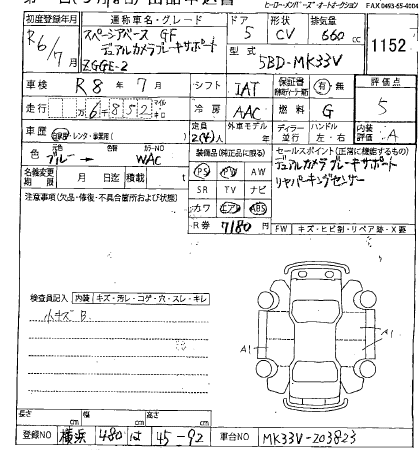 ヒーローメンバーズ・オートオークション FAX 0493-65-4004
初度登録年月 通称車名・グレード ドア 形状 排気量
R6/7月 スペーシアベース GF デュアルカメラブレーキサポート ZGGE-2 5 CV 660cc 1152
型式 5BD-MK33V
車検 R8年7月 シフト IAT 保証書 有・無 評価点
走行 万6千852 マイル キロ 冷房 AAC 燃料 G 5
車歴 自家用・レンタ・事業用 定員 2(4)人 外車モデル 年 ディーラー 並行 ハンドル 左・右 内装評価 A
色 元色 ブルー→ 色替 カラーNO WAC
装備品(純正品に限る) セールスポイント(正常に機能するもの)
名義変更期限 月 日迄 積載 t
PS PW AW デュアルカメラブレーキサポート
SR TV ナビ リヤパーキングセンサー
注意事項(欠品・修復・不具合箇所および状態)
カワ エアB ABS
R券 7180円 FW キズ・ヒビ割・リペア跡・X要
検査員記入 内装 キズ・汚レ・コゲ・穴・スレ・キレ
小キズ B
A1 A1
長さ cm 幅 cm 高さ cm
登録NO 横浜 480 は 45-92 車台NO MK33V-203823